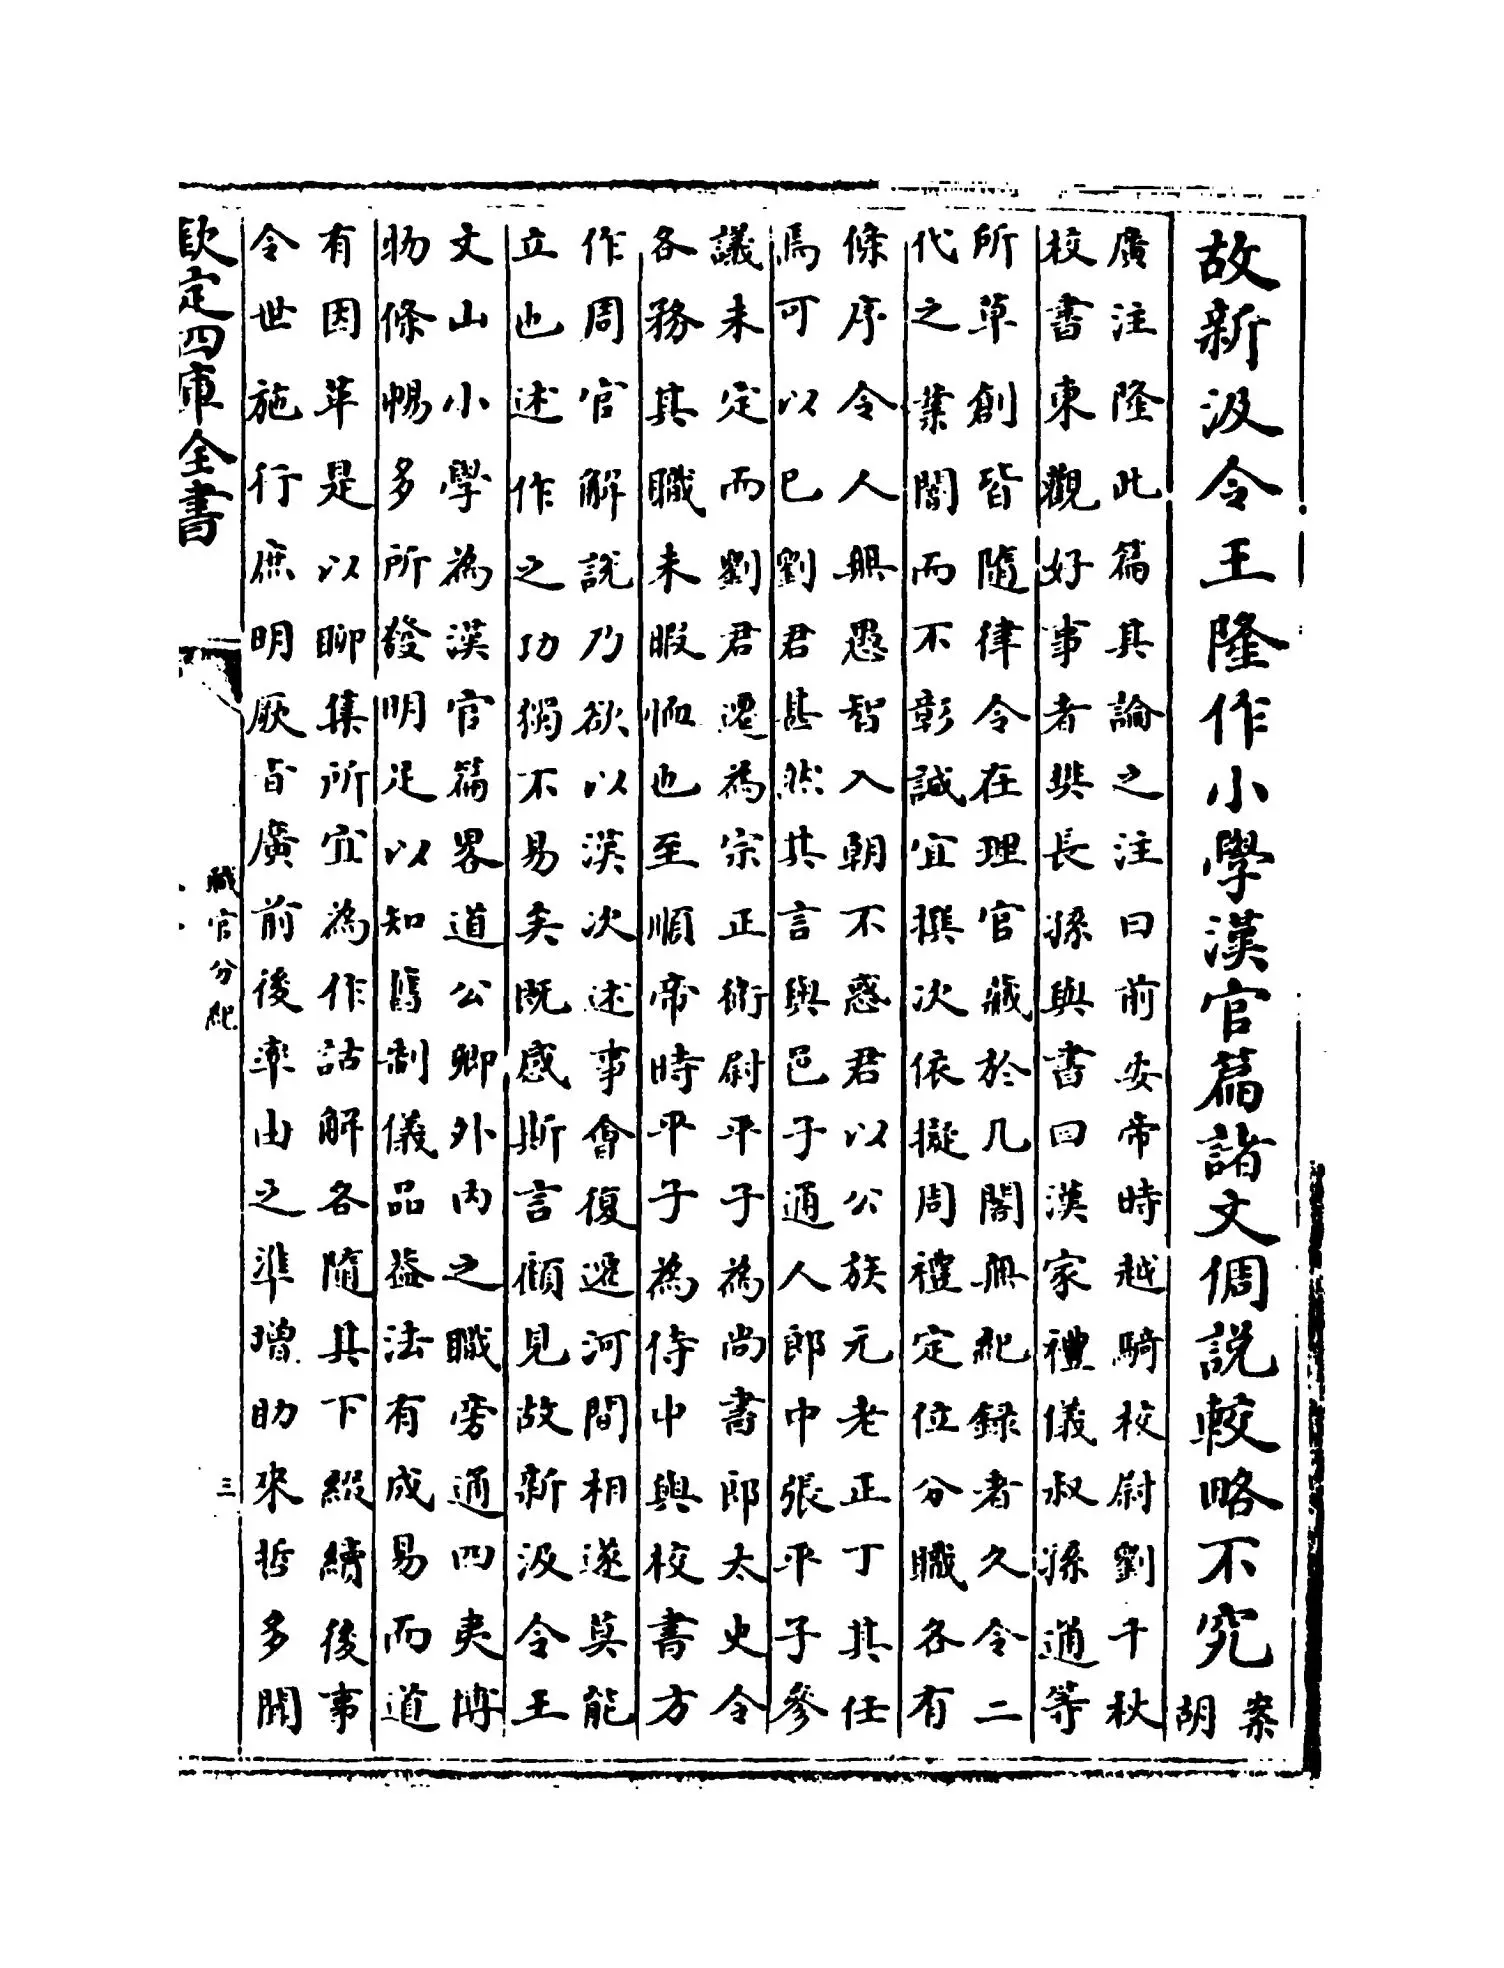 故新汲令王隆作小學漢官篇諸文倜說較略不究
案
胡
廣注隆此篇其論之注曰前安帝時越騎校尉劉千秋
校書東觀好事者樊長孫與書曰漢家禮儀叔孫通等
所草創皆隨律令在理官藏於几閣無紀録者久令二
代之業闇而不彰誠宜撰次依擬周禮定位分職各有
條序令人無愚智入朝不惑君以公族元老正丁其任
焉可以已劉君甚然其言與邑子通人郎中張平子參
議未定而劉君遷為宗正衛尉平子為尚書郎太史令
各務其職未暇恤也至順帝時平子為侍中典校書方
作周官解說乃欲以漢次述事會復遷河間相遂莫能
立也述作之功獨不易矣既感斯言顧見故新汲令王
文山小學為漢官篇畧道公卿外内之職旁通四夷博
物條暢多所發明足以知舊制儀品益法有成易而道
有因革是以聊集所宜為作詁解各隨其下綴續後事
令世施行庶明厥旨廣前後率由之準增助來哲多聞
欽定四庫全書
職官分紀
三